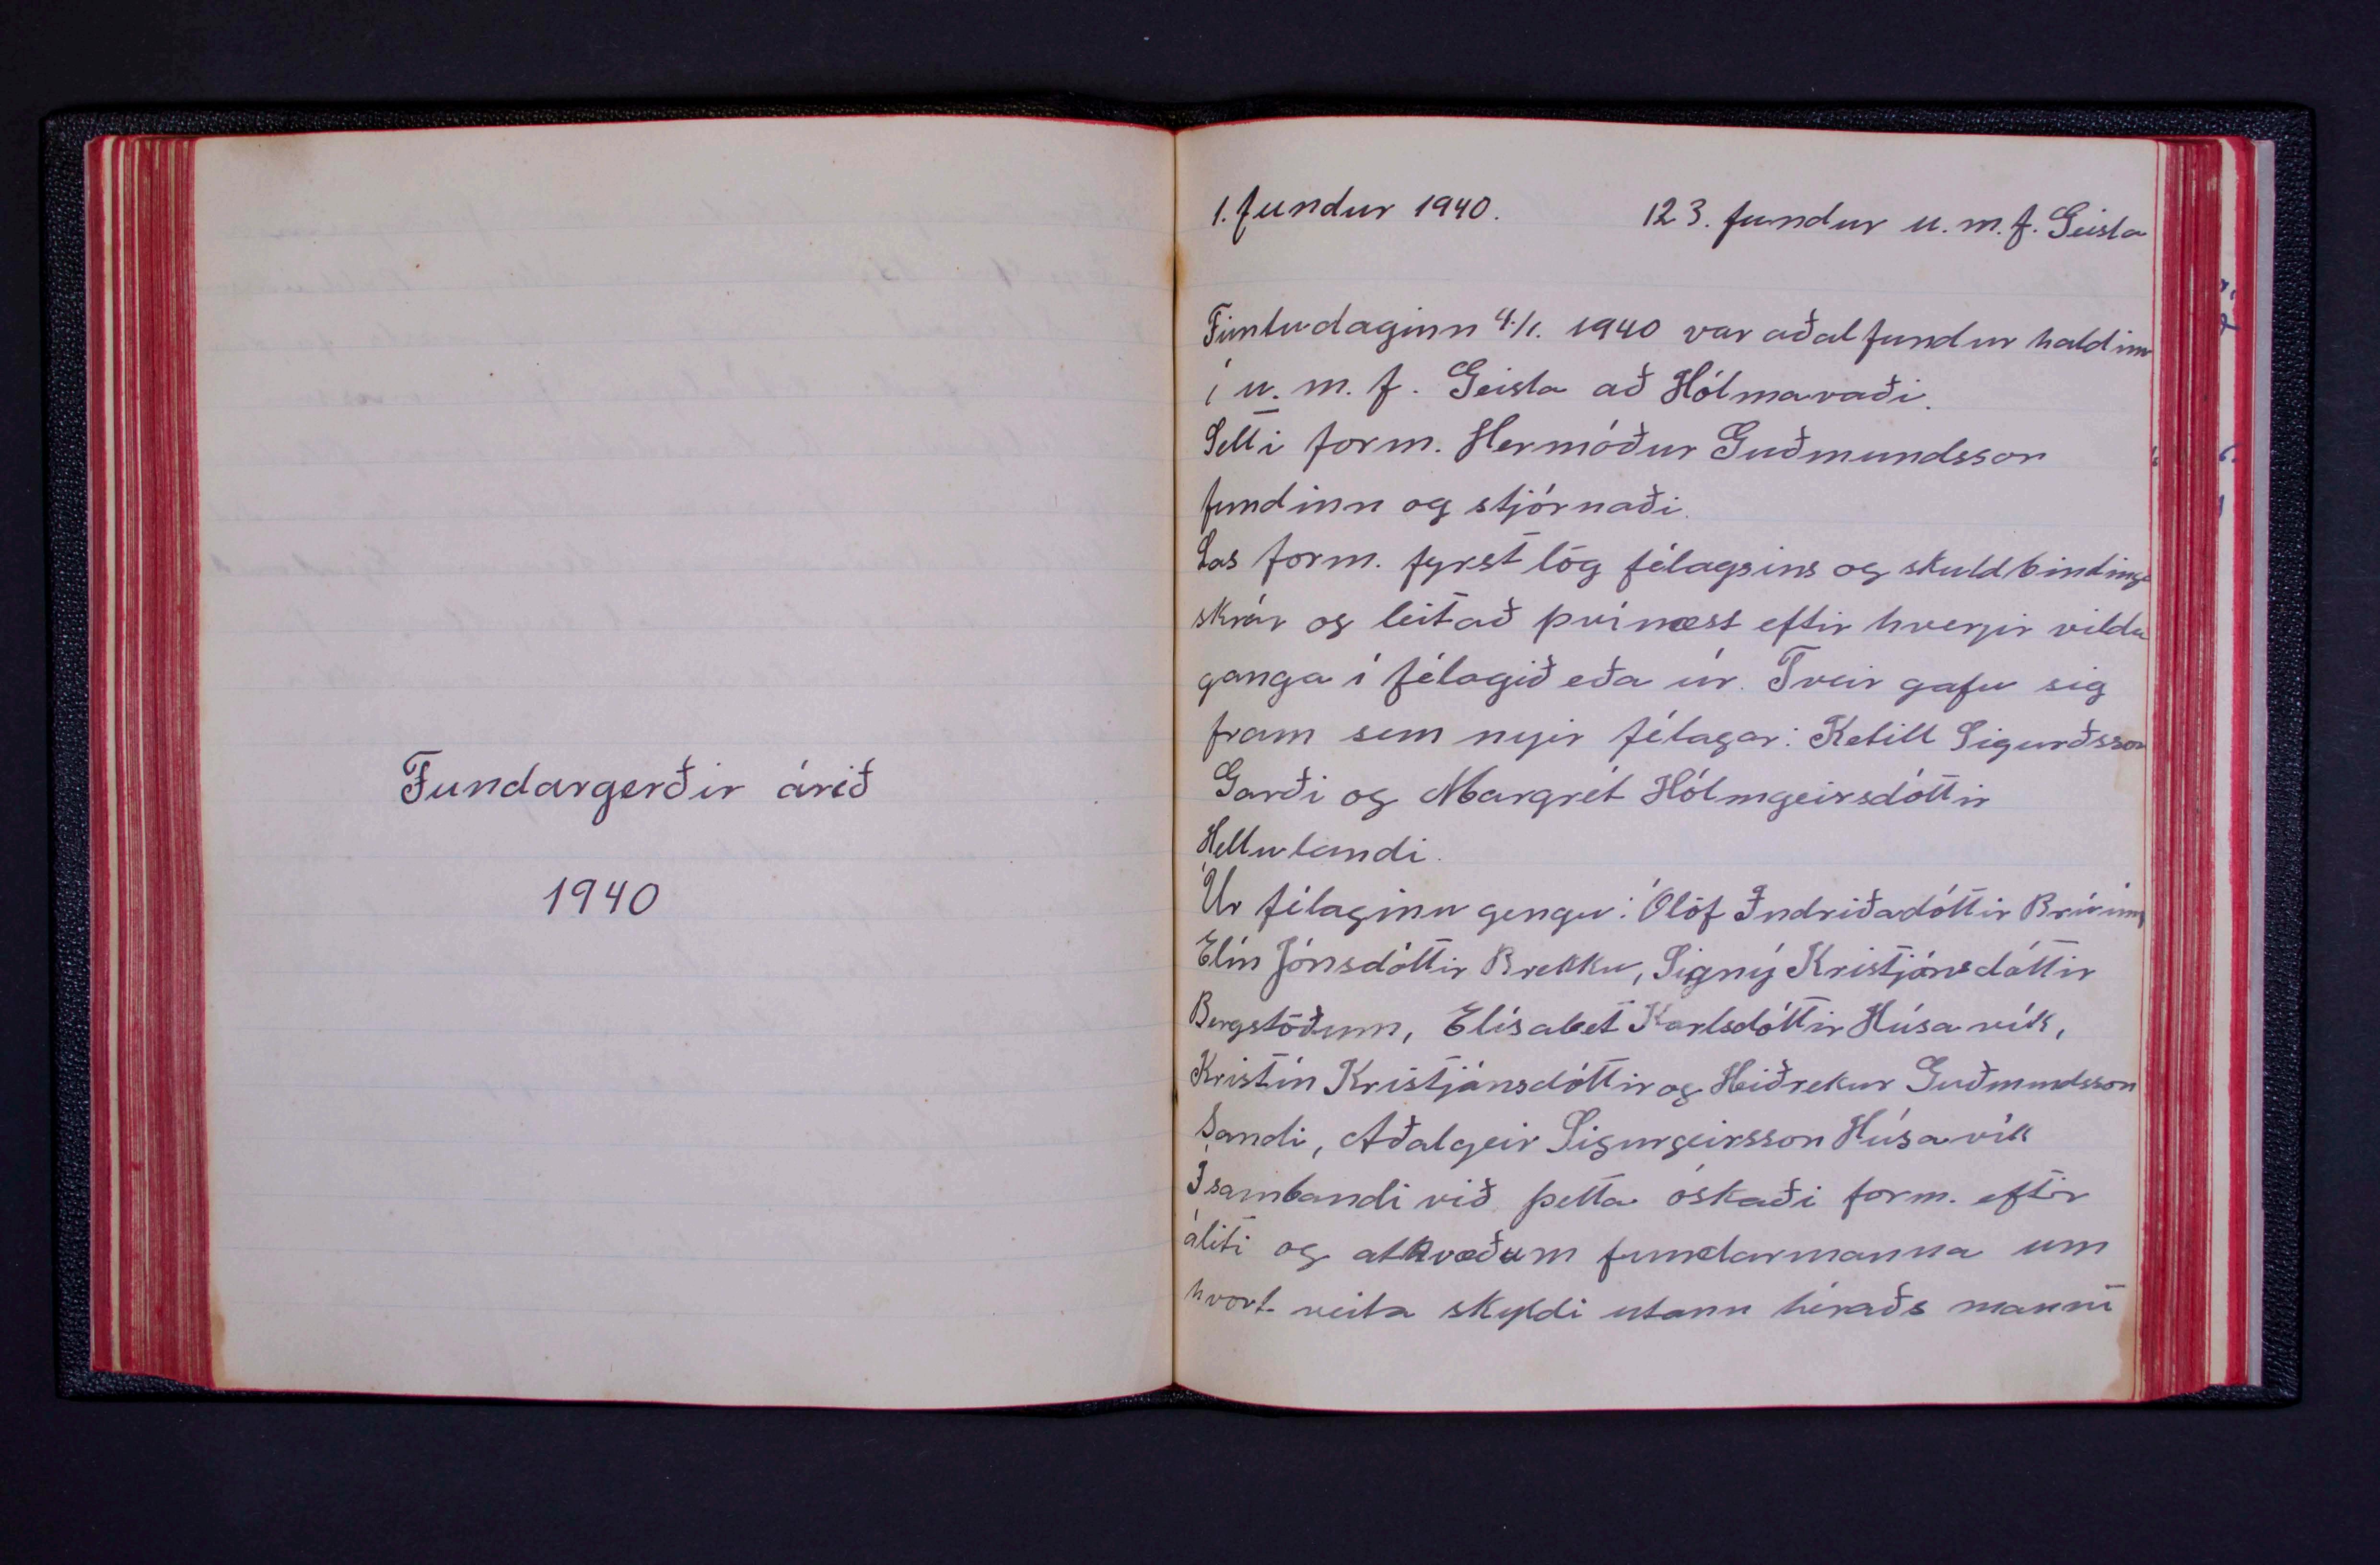 Fundargerðir árið
1940
1. fundur 1940. 123. fundur u. m. f. Geisla
Fimtudaginn 4./1. 1940 var aðalfundur haldinn
í u. m. f. Geisla að Hólmavaði.
Setti form. Hermóður Guðmundsson
fundinn og stjórnaði.
Las form. fyrst lög félagsins og skuldbindinga
skrár og leitað þvínæst eftir hverjir vildu
ganga í félagið eða úr. Tveir gafu sig
fram sem nyir félagar: Ketill Sigurðsson
Garði og Margrét Hólmgeirsdóttir
Hellulandi.
Úr félaginu gengu: Ólöf Indriðadóttir
Elín Jónsdóttir Brekku, Signý Kristjánsdóttir
Bergstöðum, Elísabet Karlsdóttir Húsavík,
Kristín Kristjánsdóttir og Heiðrekur Guðmundsson
Sandi, Aðalgeir Sigurgeirsson Húsavík
Í sambandi við þetta óskaði form. eftir
áliti og atkvæðum fundarmanna um
hvort veita skyldi utann héraðs manni